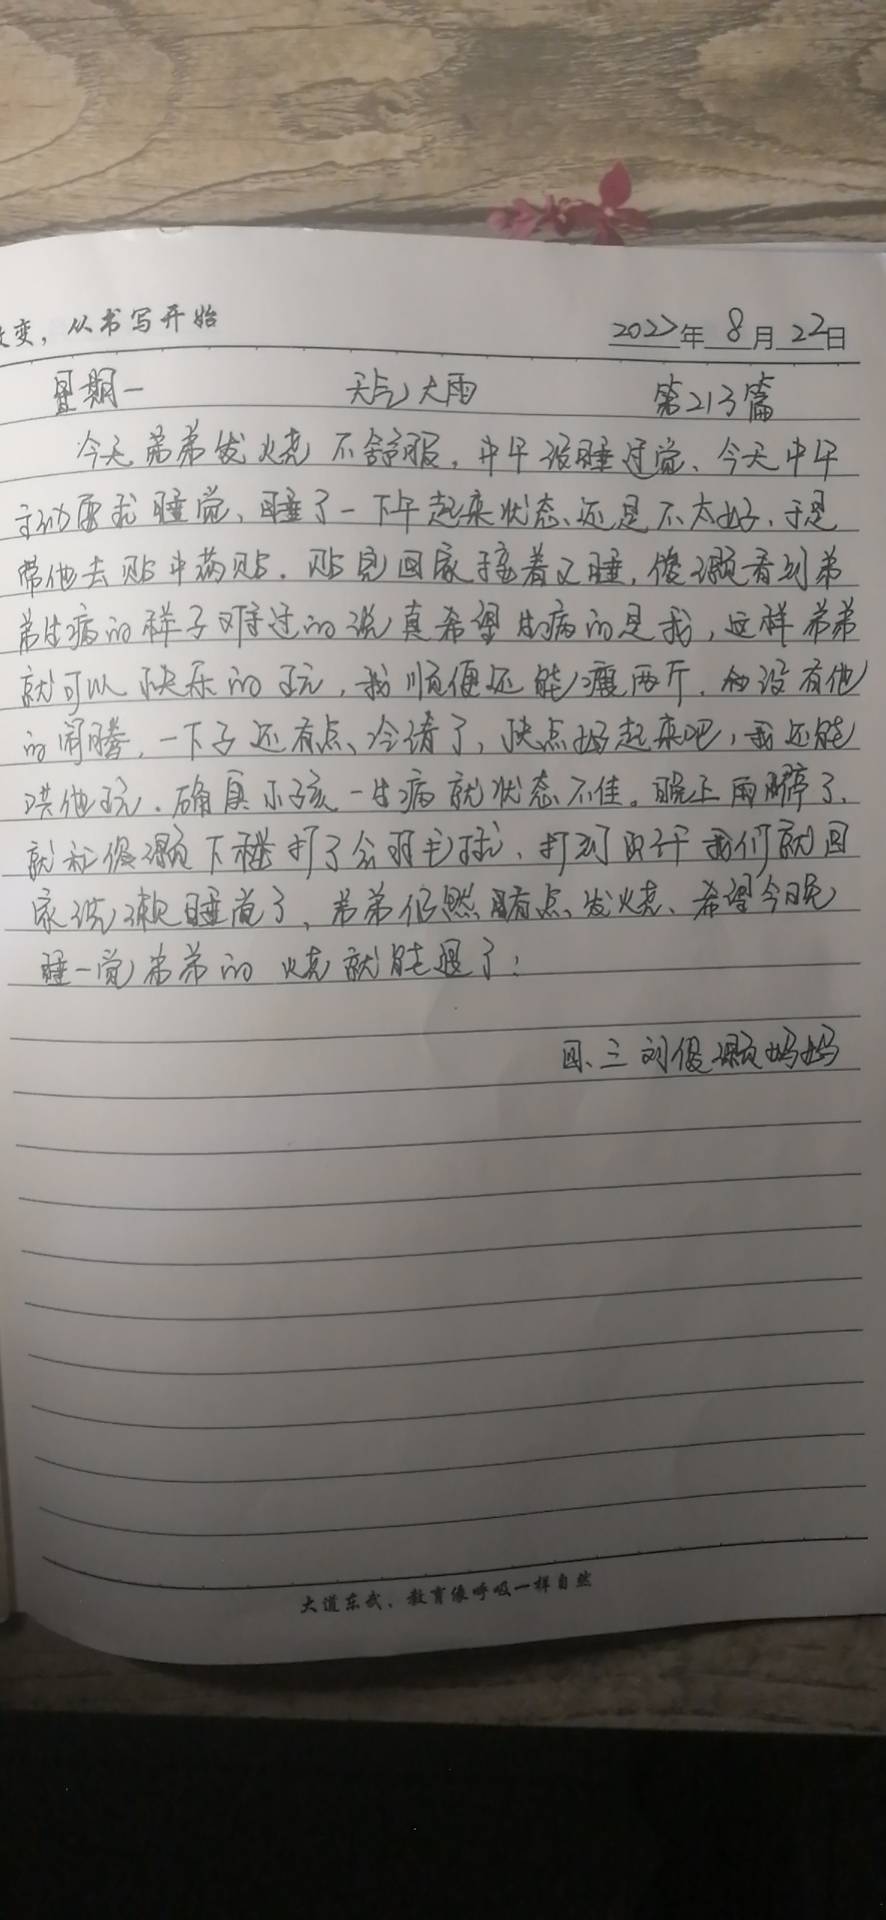 变，从书写开始
2022年 8月 22日
星期一 天气 大雨 第213篇
今天弟弟发烧不舒服，中午没睡过觉、今天中午
主动要求睡觉、睡了一下午起来状态、还是不太好、于是
带他去贴中药贴．贴完回家接着又睡，俊灏看到弟
弟生病的样子难过的说真希望生病的是我，这样弟弟
就可以快乐的玩，我顺便还能瘦两斤．没有他
的闹腾，一下子还有点、冷清了，快点好起来吧，我还能
哄他玩．确真小孩一生病就状态不佳。晚上雨停了、
就和俊灏下楼打了会羽毛球、打到我们就回
家洗漱睡着了，弟弟仍然有点、发烧、希望今晚
睡一觉弟弟的烧就能退了！
四、三刘俊灏妈妈
大道东武、教育像呼吸一样自然